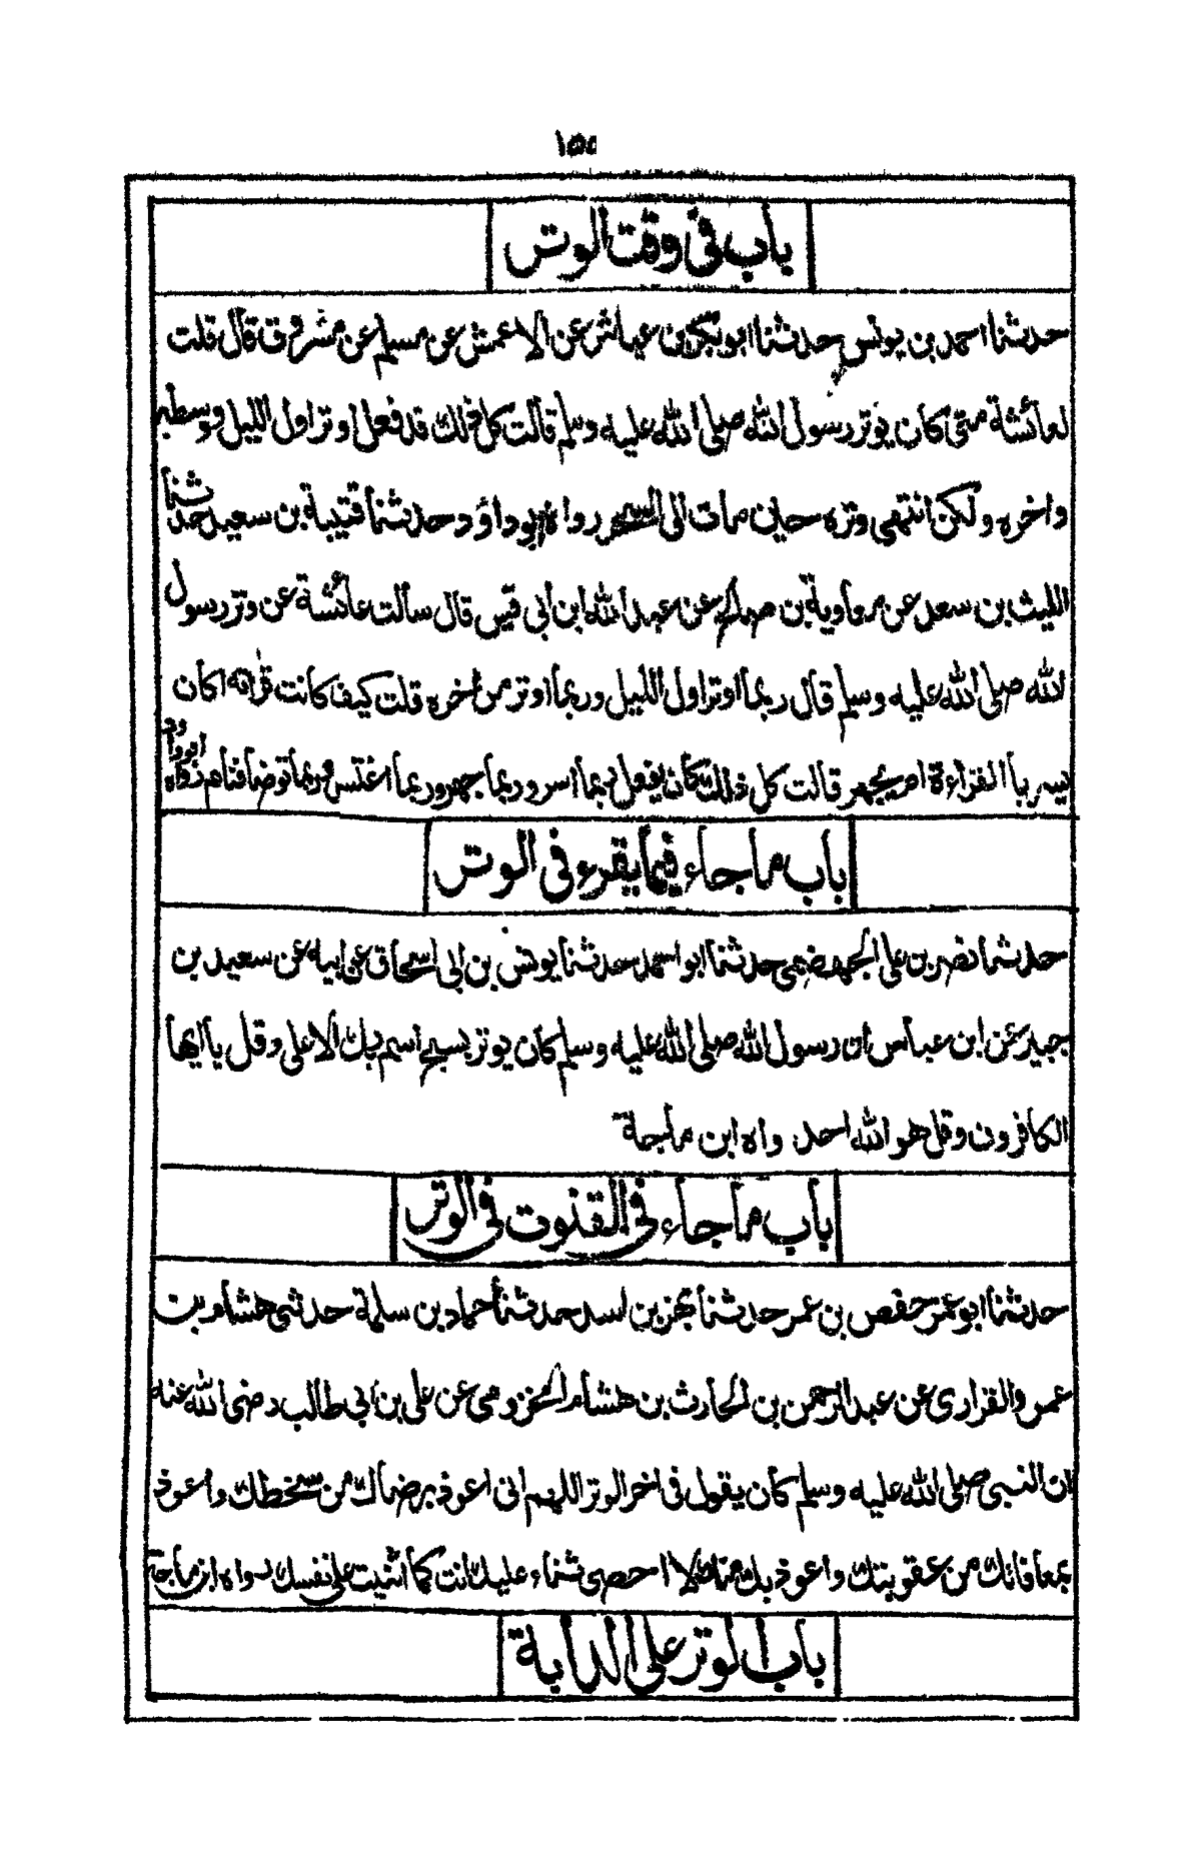 ١٥٥
باب في وقت الوتر
حدثنا احمد بن يونس حدثنا ابو بكر بن عياش عن الاعمش عن مسلم عن مسروق قال قلت
لعائشة متى كان يوتر رسول الله صلى الله عليه وسلم قالت كل ذلك قد فعل اوتر اول الليل ووسطه
واخره ولكن انتهى وتره حين مات الى السحر رواه ابوداؤد حدثنا قتيبة بن سعيد حدثنا
الليث بن سعد عن معاوية بن صالح عن عبد الله ابن ابى قيس قال سألت عائشة عن وتر رسول
الله صلى الله عليه وسلم قال ربما اوتر اول الليل وربما اوتر من اخره قلت كيف كانت قرائته اكان
يسر بالقراءة ام يجهر قالت كل ذلك كان يفعل ربما اسر وربما جهر وربما اغتسل وربما توضأ فنام رواه ابوداود
باب ما جاء فيما يقرء فى الوتر
حدثنا نصر بن على الجهضمى حدثنا ابو احمد حدثنا يونس بن ابى اسحاق عن ابيه عن سعيد بن
جبير عن ابن عباس ان رسول الله صلى الله عليه وسلم كان يوتر بسبح اسم ربك الاعلى وقل يا ايها
الكافرون وقل هو الله احد رواه ابن ماجة
باب ما جاء فى القنوت فى الوتر
حدثنا ابو عمر حفص بن عمر حدثنا بهز بن اسد حدثنا حماد بن سلمة حدثنى هشام بن
عمرو الفزارى عن عبد الرحمن بن الحارث بن هشام المخزومى عن على بن ابى طالب رضى الله عنه
ان النبى صلى الله عليه وسلم كان يقول فى اخر الوتر اللهم انى اعوذ برضاك من سخطك واعوذ
بمعافاتك من عقوبتك واعوذ بك منك لا احصى ثناء عليك انت كما اثنيت على نفسك رواه ابن ماجة
باب الوتر على الدابة